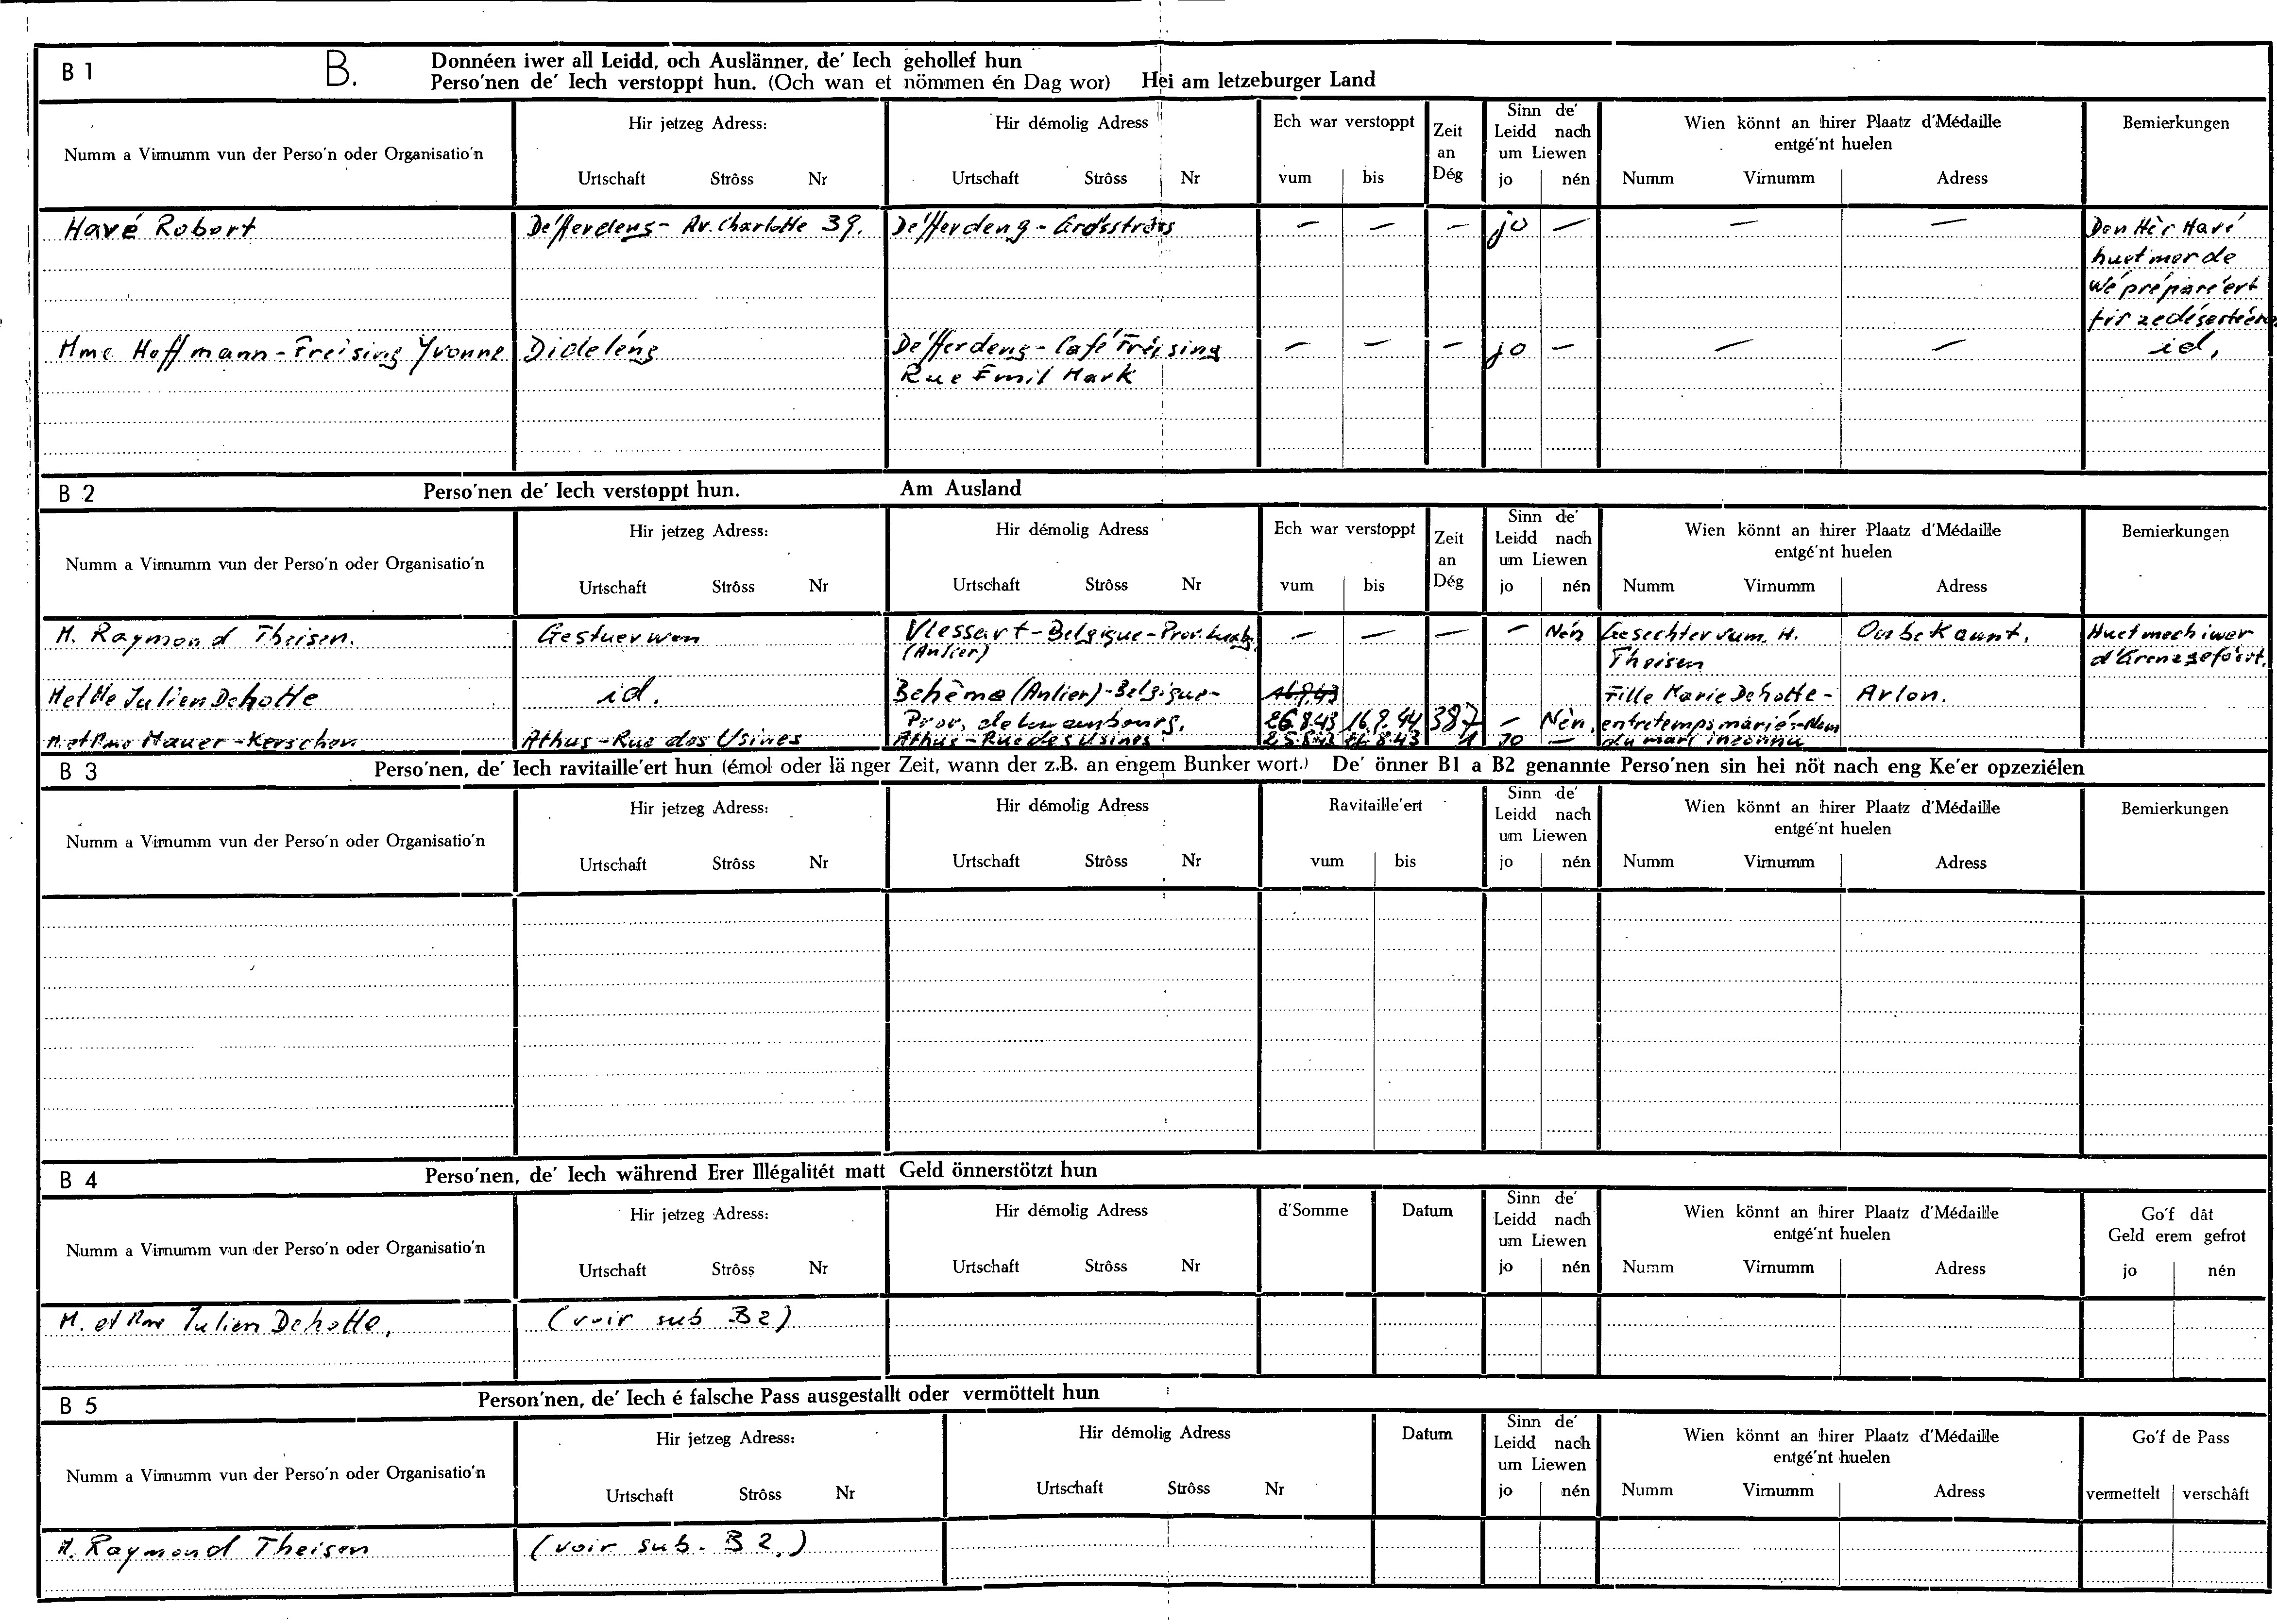 B 1 B. Donnéen iwer all Leidd, och Auslänner, de' Iech gehollef hun
Perso'nen de' Iech verstoppt hun. (Och wan et nömmen én Dag wor) Hei am letzeburger Land
Numm a Virnumm vun der Perso'n oder Organisatio'n
Hir jetzeg Adress:
Urtschaft Strôss Nr
Hir démolig Adress
Urtschaft Strôss Nr
Ech war verstoppt
vum bis
Zeit
an
Dég
Sinn de'
Leidd nach
um Liewen
jo nén
Wien könnt an hirer Plaatz d'Médaille
entgé'nt huelen
Numm Virnumm Adress
Bemierkungen
Havé Robert De'fferdeng - Av. Charlotte 39. De'fferdeng - Gro'sströss — — — jo — — — Den Hèr Havé
huet mer de
Wé prépare'ert
fir ze
Mme Hoffmann - Freising Yvonne Dideléng De'fferdeng - Café Freising — — — jo — — — id.
Rue Emil Mark
B 2 Perso'nen de' Iech verstoppt hun. Am Ausland
Numm a Virnumm vun der Perso'n oder Organisatio'n
Hir jetzeg Adress:
Urtschaft Strôss Nr
Hir démolig Adress
Urtschaft Strôss Nr
Ech war verstoppt
vum bis
Zeit
an
Dég
Sinn de'
Leidd nach
um Liewen
jo nén
Wien könnt an hirer Plaatz d'Médaille
entgé'nt huelen
Numm Virnumm Adress
Bemierkungen
M. Raymond Theisen. Gestuerwen Vlessart - Belgique - Prov. Luxbg. — — — — Nén Gesechter vum H. Onbekannt. Huet mech iwer
(Anlier) Theisen d'Grenz gefo'ert.
M et Me Julien Dehotte id. Behême (Anlier) - Belgique - 16.9.43 Fille Marie Dehotte - Arlon.
Prov. de Luxembourg. 26.8.43 16.9.44 387 — Nén. entretemps marié - Nom
M. et Mme Mauer - Kerschen Athus - Rue des Usines Athus - Rue des Usines 25.8.43 26.8.43 1 jo — du mari inconnu
B 3 Perso'nen, de' Iech ravitaille'ert hun (émol oder länger Zeit, wann der z.B. an engem Bunker wort.) De' önner B1 a B2 genannte Perso'nen sin hei nöt nach eng Ke'er opzeziélen
Numm a Virnumm vun der Perso'n oder Organisatio'n
Hir jetzeg Adress:
Urtschaft Strôss Nr
Hir démolig Adress
Urtschaft Strôss Nr
Ravitaille'ert
vum bis
Sinn de'
Leidd nach
um Liewen
jo nén
Wien könnt an hirer Plaatz d'Médaille
entgé'nt huelen
Numm Virnumm Adress
Bemierkungen
B 4 Perso'nen, de' Iech während Erer Illégalitét matt Geld önnerstötzt hun
Numm a Virnumm vun der Perso'n oder Organisatio'n
Hir jetzeg Adress:
Urtschaft Strôss Nr
Hir démolig Adress
Urtschaft Strôss Nr
d'Somme
Datum
Sinn de'
Leidd nach
um Liewen
jo nén
Wien könnt an hirer Plaatz d'Médaille
entgé'nt huelen
Numm Virnumm Adress
Go'f dât
Geld erem gefrot
jo nén
M. et Mme Julien Dehotte. (voir sub B2)
B 5 Person'nen, de' Iech é falsche Pass ausgestallt oder vermöttelt hun
Numm a Virnumm vun der Perso'n oder Organisatio'n
Hir jetzeg Adress:
Urtschaft Strôss Nr
Hir démolig Adress
Urtschaft Strôss Nr
Datum
Sinn de'
Leidd nach
um Liewen
jo nén
Wien könnt an hirer Plaatz d'Médaille
entgé'nt huelen
Numm Virnumm Adress
Go'f de Pass
vermettelt verschâft
M. Raymond Theisen (voir sub. B 2.)